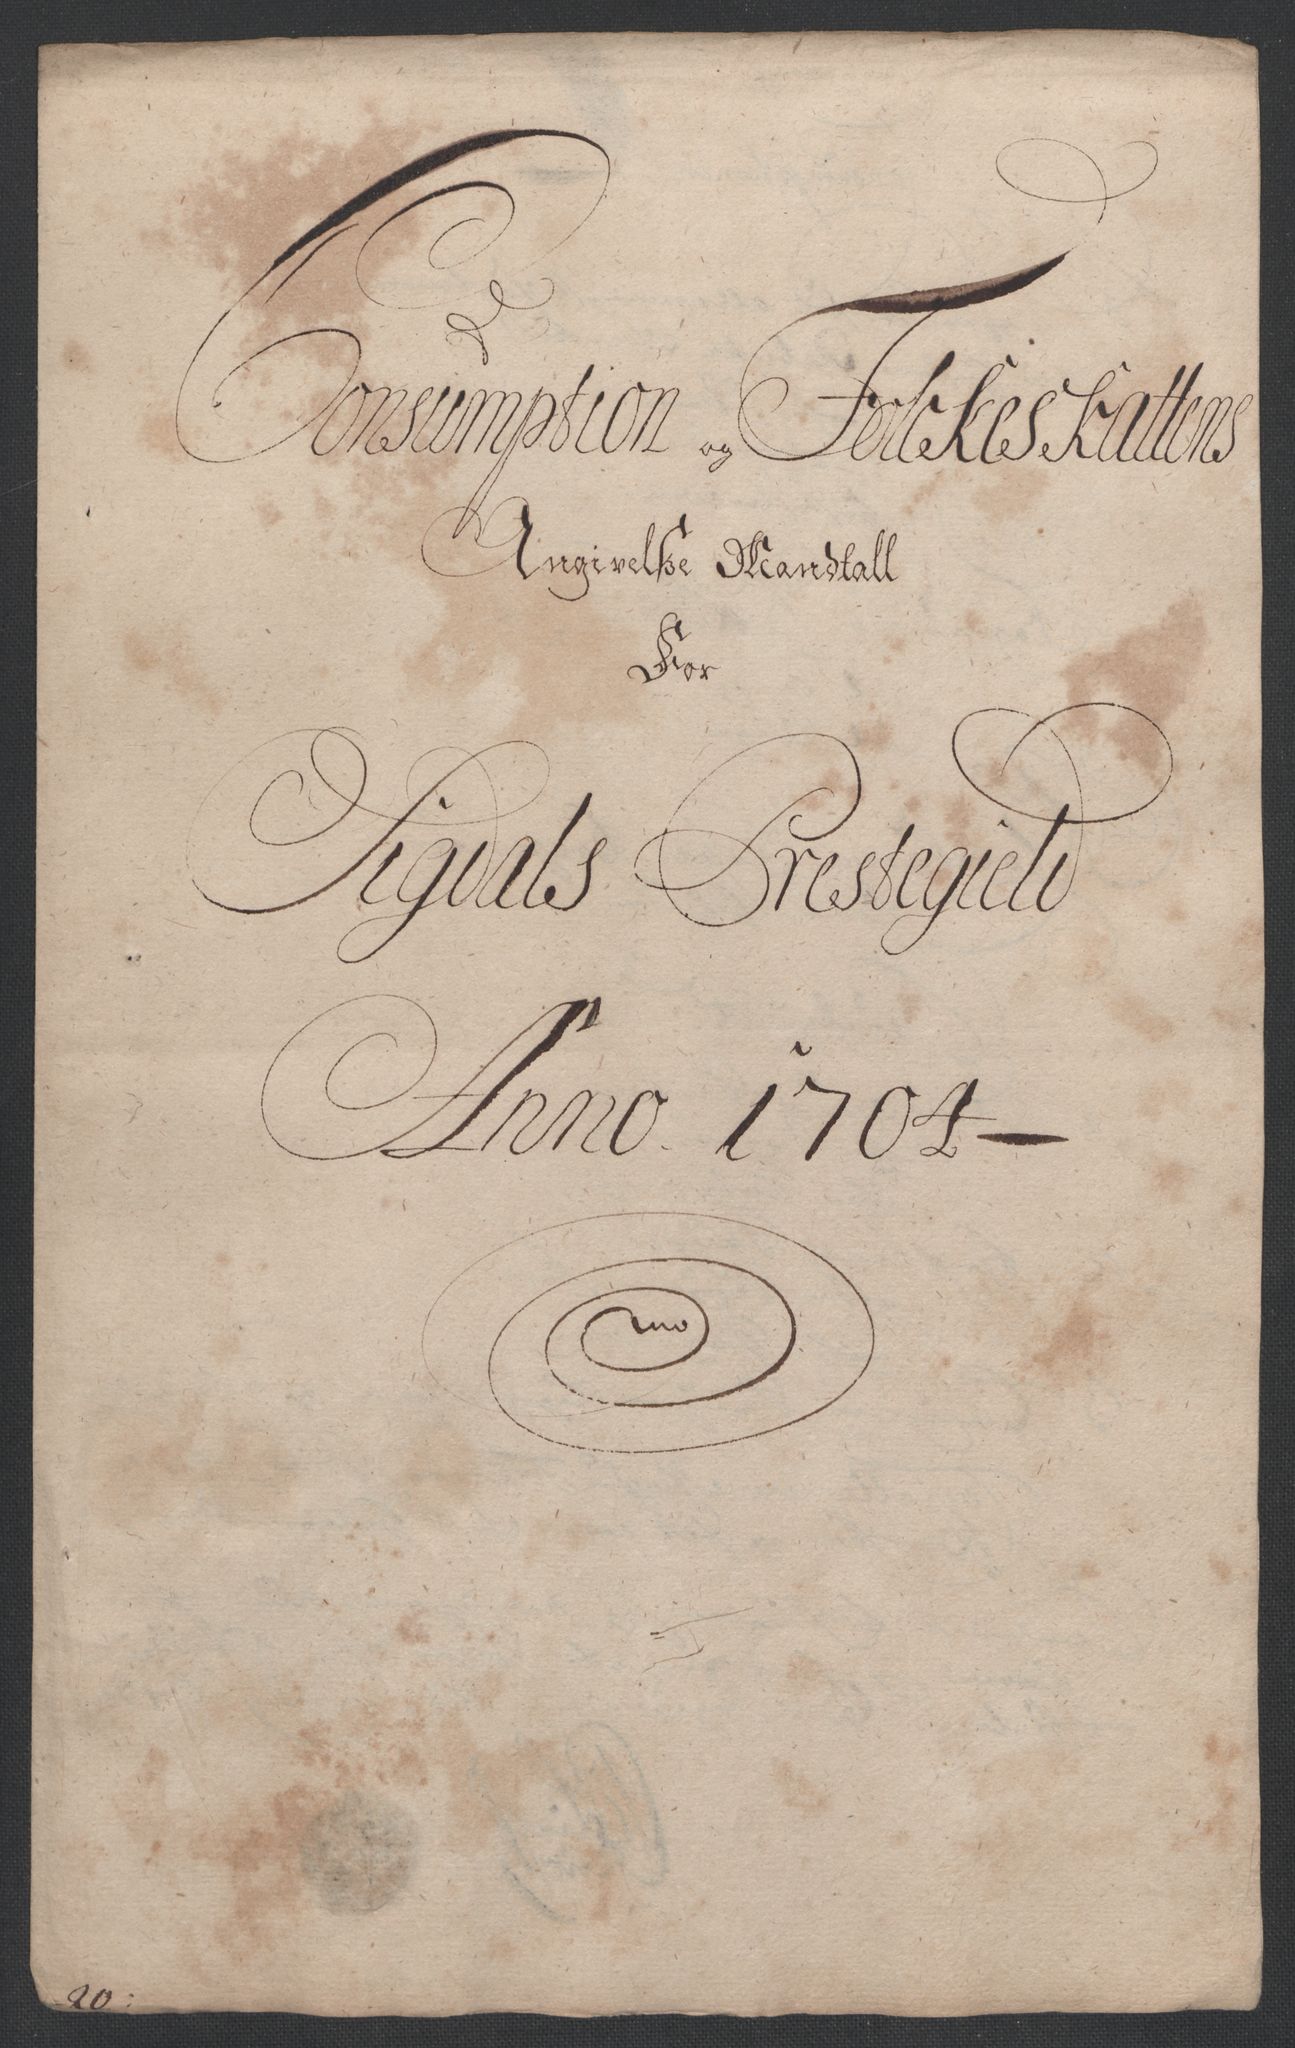 Consumption og Folckeskattens
Angivelße Mandtall
For
Sigdals Prestegield
Anno. 1704
20: